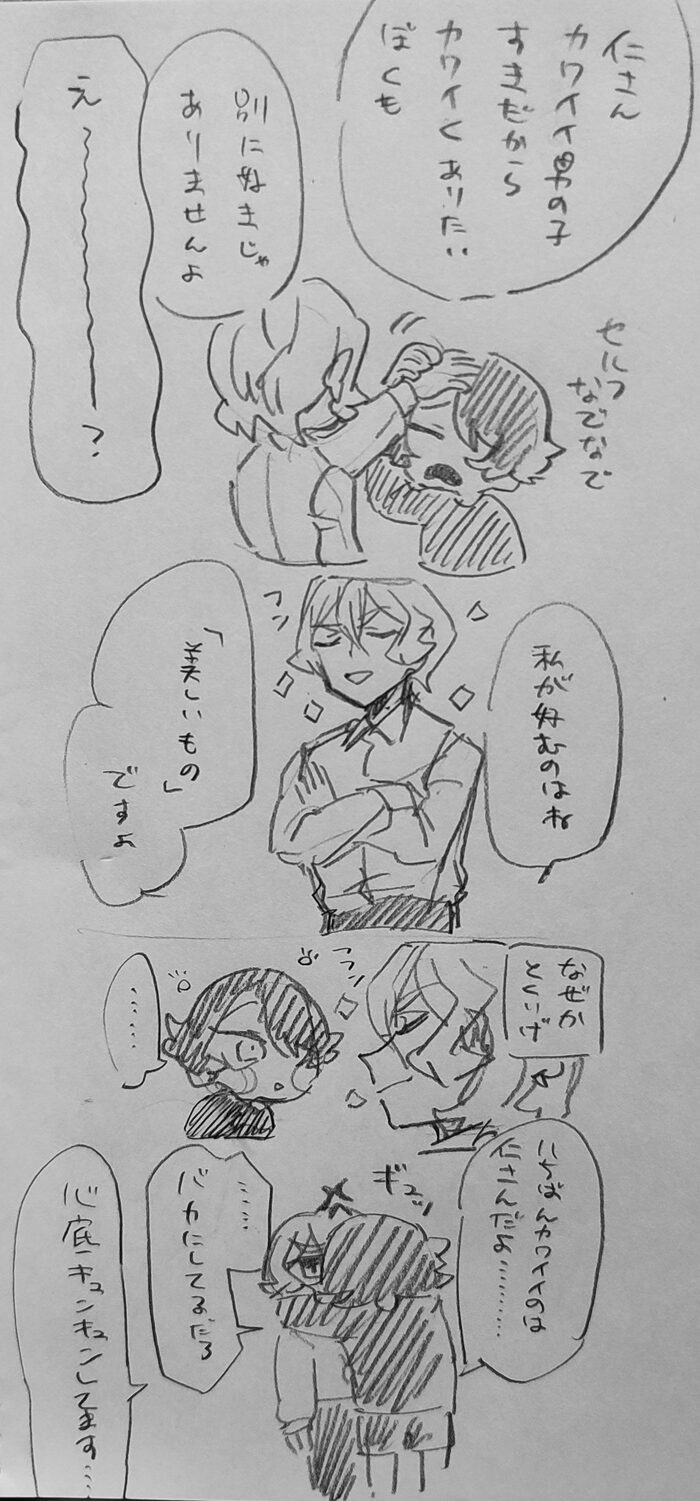 仁さん
カワイイ男の子
すきだから
カワイくありたい
ぼくも
別に好きじゃ
ありませんよ
え〜〜〜〜〜〜ー?
セルフ
なでなで
私が好むのはね
フン
「美しいもの」
ですよ
なぜか
とくいげ
フフン
……
いちばんカワイイのは
仁さんだよ………
ギュッ
……
バカにしてるだろ
心底キュンキュンしてます……